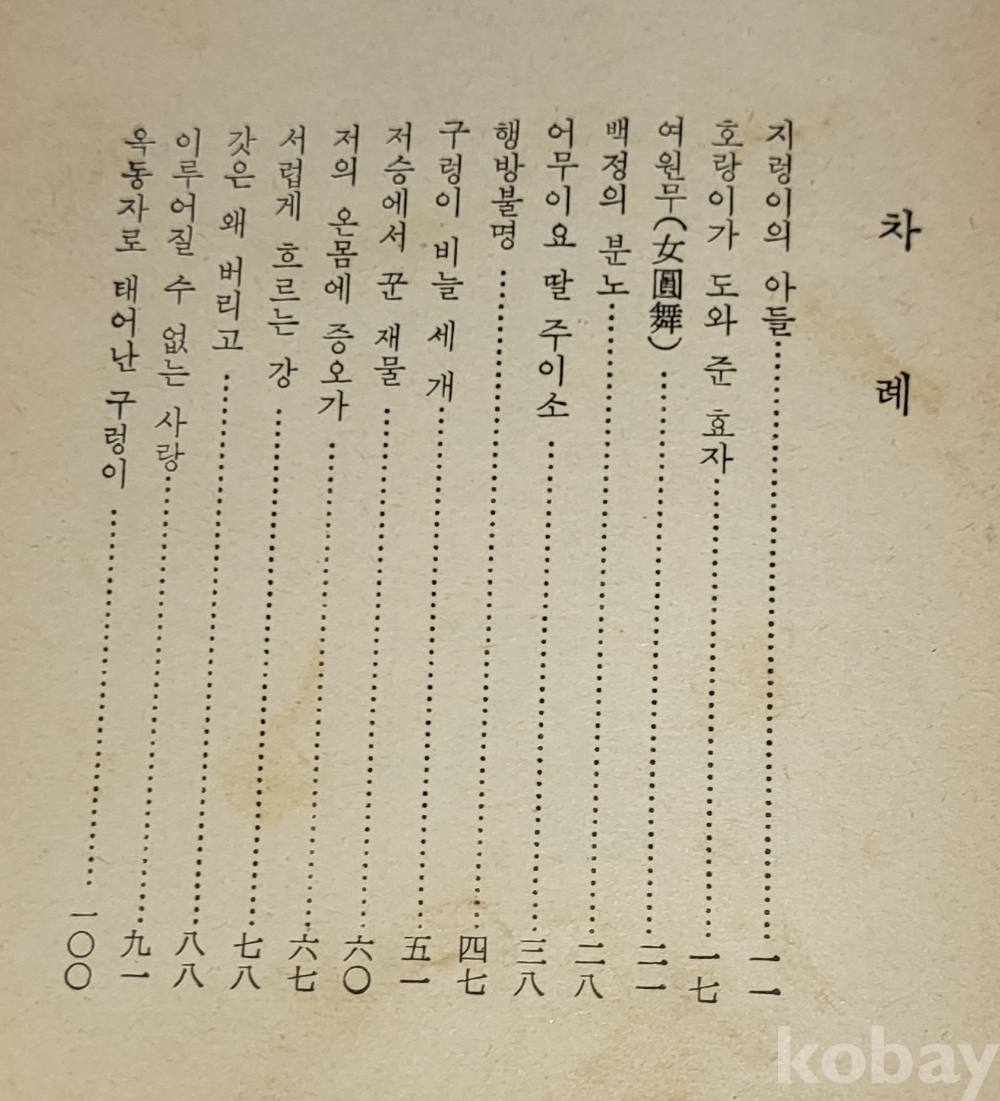 차 례
지렁이의 아들……一一
호랑이가 도와 준 효자……一七
여원무(女圓舞)……二一
백정의 분노……二八
어무이요 딸 주이소……三八
행방불명……四七
구렁이 비늘 세 개……五一
저승에서 꾼 재물……六〇
저의 온몸에 증오가……六七
서럽게 흐르는 강……七八
갓은 왜 버리고……八八
이루어질 수 없는 사랑……九一
옥동자로 태어난 구렁이……一〇〇
kobay